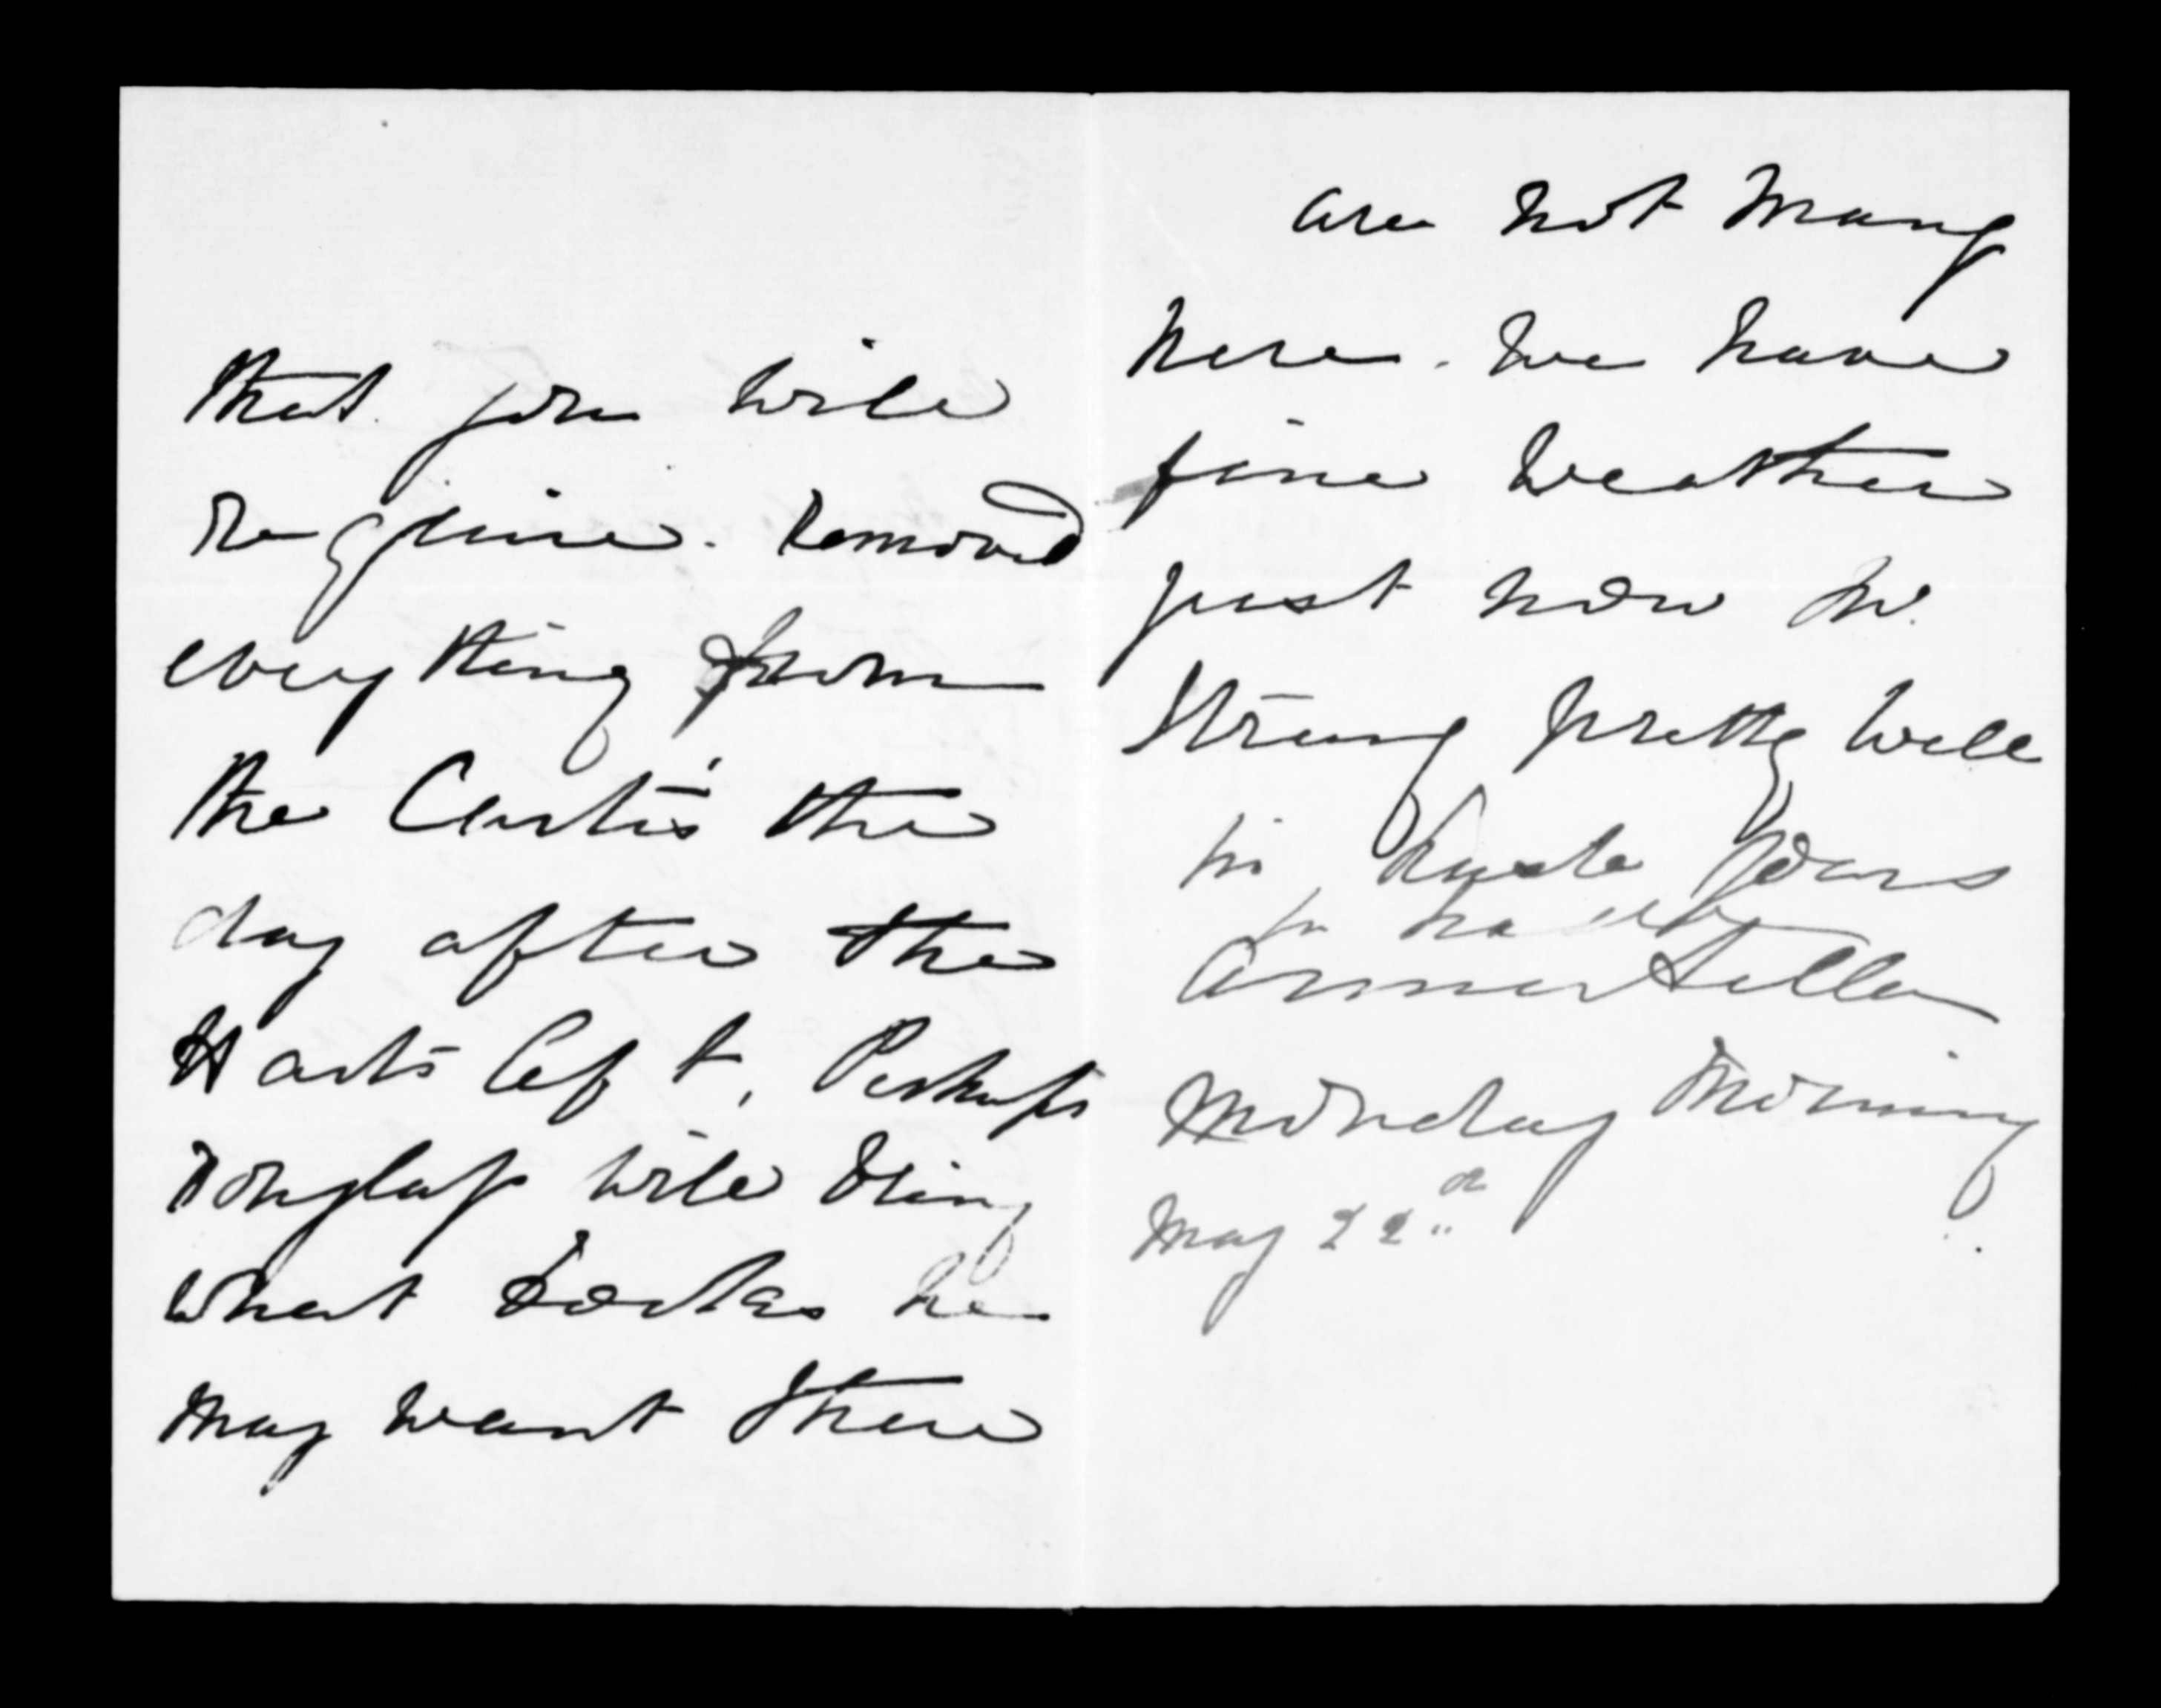 that you will
require. Removed
everything from
the Curtis' the
day after the
Harts left, Perhaps
Douglass will bring
what books he
may want there
are not many
here. We have
fine weather
just now Mr.
Strang pretty well
in haste Yours
in haste
Anna
Monday Morning
May 22"d